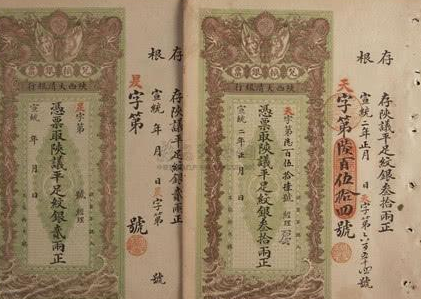 存根
存陝議平足紋銀叁拾兩正
宣統二年正月 日 天字第六百五十四號
天字第陸百伍拾四號
兌換銀票
陝西大清銀行
天字第陸百伍拾肆號 經理
憑票取陝議平足紋銀叁拾兩正
宣統二年正月 日
存根
存陝議平足紋銀貳兩正
宣統 年 月 日 字第 號
字第 號
兌換銀票
陝西大清銀行
字第 號 經理
憑票取陝議平足紋銀貳兩正
宣統 年 月 日